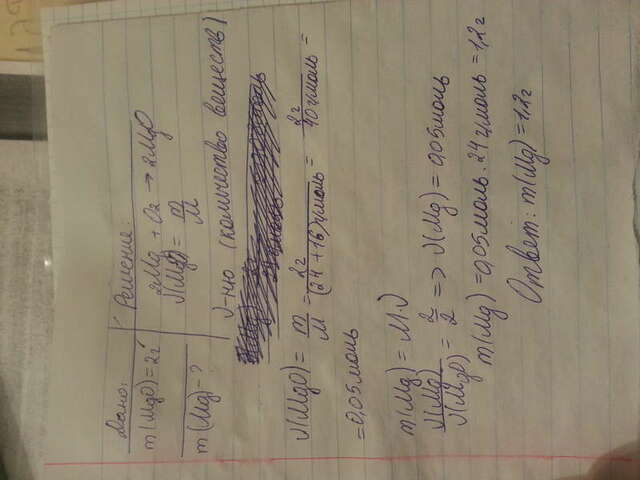 Дано:
m(MgO)=2г
m(Mg)-?
Решение:
2Mg + O2 → 2MgO
ν(MgO) = m/M
ν-ню (количество веществ)
ν(MgO) = m/M = 2г/(24+16)г/моль = 2г/40г/моль =
=0,05моль
m(Mg)=M·ν
ν(Mg)/ν(MgO) = 2/2 => ν(Mg)=0,05моль
m(Mg)=0,05моль·24г/моль=1,2г
Ответ: m(Mg)=1,2г